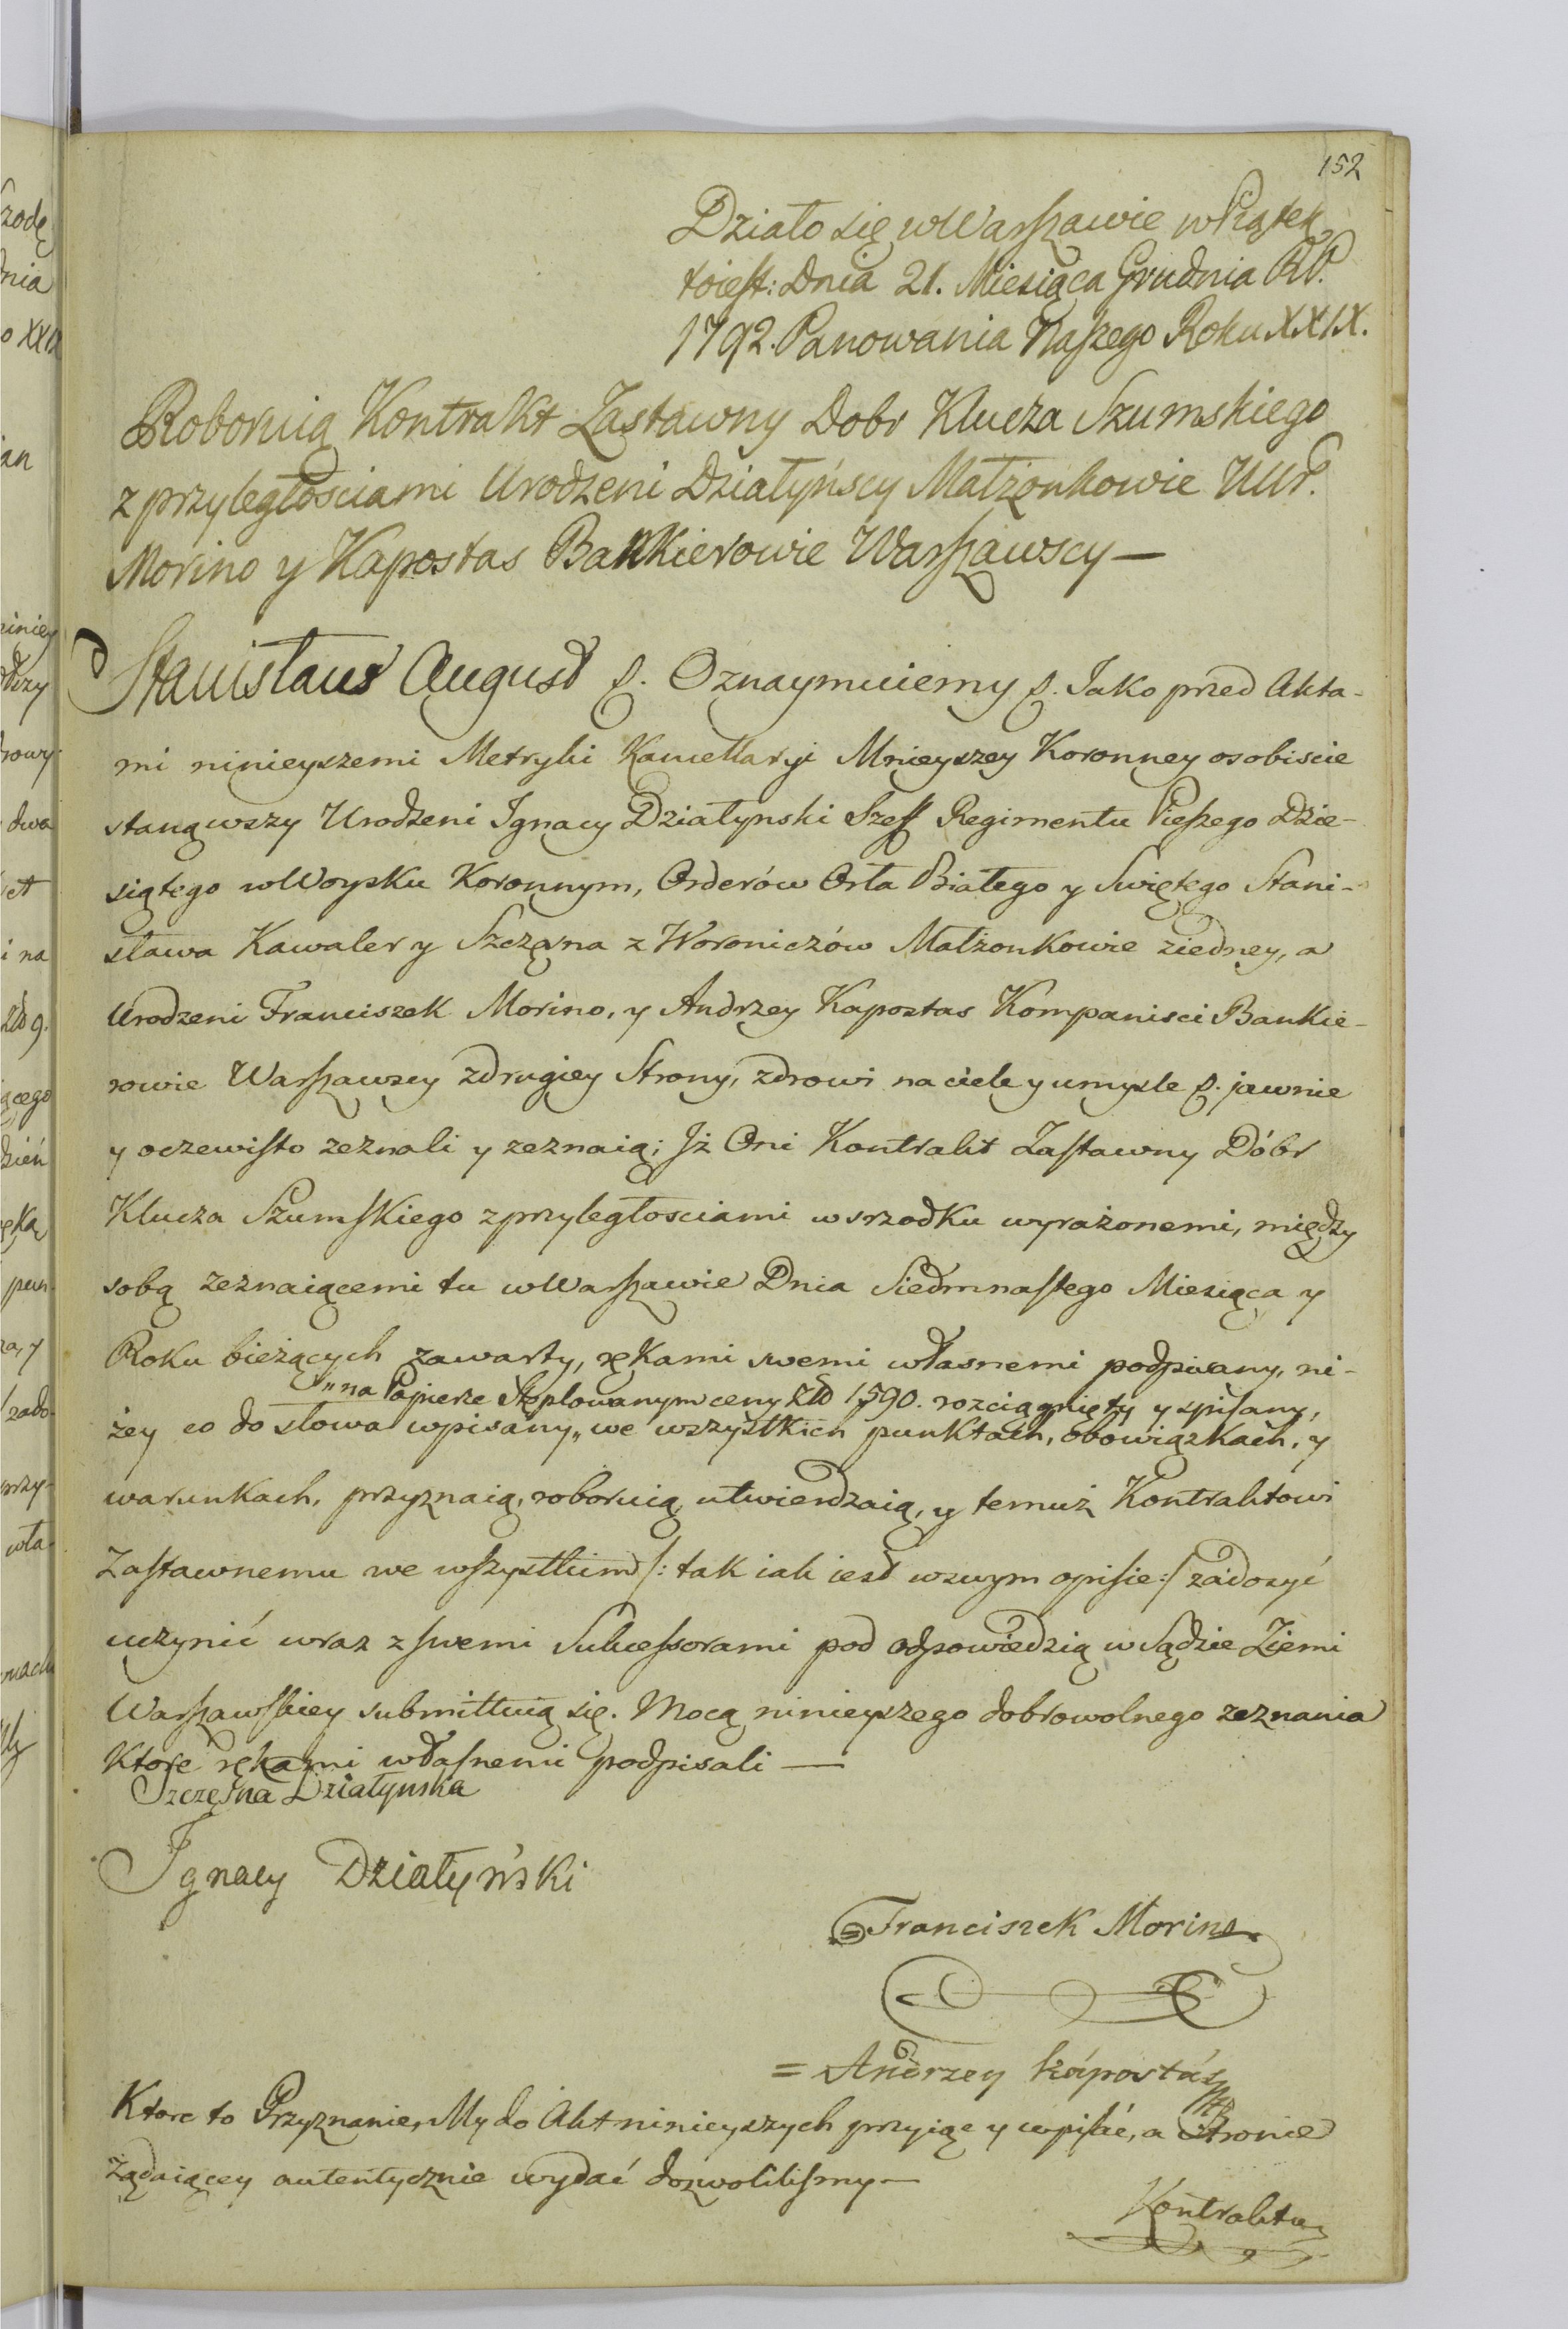 152
Działo się w Warszawie w Piątek
toiest: Dnia 21. Miesiąca Grudnia RP.
1792. Panowania Naszego Roku XXIX.
Roboruią Kontrakt Zastawny Dobr Klucza Szumskiego
z przyległosciami Urodzeni Działyńscy Małzonkowie UUr.
Morino y Kapostas Bankierowie Warszawscy —
Stanisław August p. Oznaymuiemy p. Jako przed Akta-
mi ninieyszemi Metryki Kancellaryi Mnieyszey Koronney osobiscie
stanąwszy Urodzeni Ignacy Działynski Szeff Regimentu Pieszego Dzie-
siątego w Woysku Koronnym, Orderów Orła Białego y Swiętego Stani-
sława Kawaler y Szczęsna z Woroniczów Małzonkowie ziedney, a
Urodzeni Franciszek Morino, y Andrzey Kapostas Kompanisci Bankie-
rowie Warszawscy zdrugiey Strony, zdrowi na ciele y umysle p. jawnie
y oczewisto zeznali y zeznaią; Iż Oni Kontrakt Zastawny Dóbr
Klucza Szumskiego z przyległosciami w srzodku wyrażonemi, między
sobą zeznaiącemi tu w Warszawie Dnia Siedmnastego Miesiąca y
Roku bieżących zawarty, rękami swemi własnemi podpisany, ni-
„na Papierze Stęplowanym ceny Złł 1590. rozciągnięty y spisany,
żey co do słowa wpisany„ we wszystkich punktach, obowiązkach, y
warunkach, przyznaią, roboruią, utwierdzaią, y temuż Kontraktowi
Zastawnemu we wszystkim /: tak iak iest w swym opisie :/ zadosyć
uczynić wraz z swemi Sukcessorami pod odpowiedzią w Sądzie Ziemi
Warszawskiey submittuią się. Mocą ninieyszego dobrowolnego zeznania
Ktore rękami własnemi podpisali —
Szczęsna Działynska
Ignacy Działyński
Franciszek Morino
= Andrzey kápostás
Ktore to Przyznanie, My do Akt ninieyszych przyiąc y wpisać, a Stronie
żądaiącey autentycznie wydać dozwolilismy —
Kontraktu